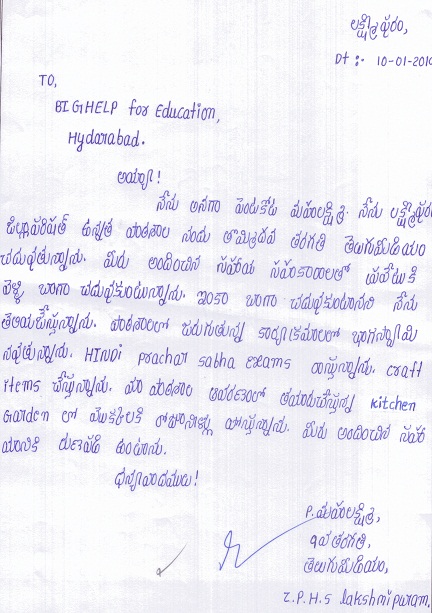 లక్ష్మీపురం,
Dt :- 10-01-2019
TO,
BIGHELP for Education,
Hyderabad.
అయ్యా!
నేను అనగా పెండుకోట మహాలక్ష్మి. నేను లక్ష్మీపురం
జిల్లాపరిషత్ ఉన్నత పాఠశాల నందు తొమ్మిదవ తరగతి తెలుగుమీడియం
చదువుతున్నాను. మీరు అందించిన సహాయ సహకారాలతో
వెళ్ళి బాగా చదువుకుంటున్నాను. ఇంకా బాగా చదువుకుంటానని నేను
తెలియజేస్తున్నాను. పాఠశాలలో జరుగుతున్న కార్యక్రమాలలో భాగస్వామి
నవుతున్నాను. HINDI prachar sabha exams రాస్తున్నాను. craft
items చేస్తున్నాను. మా పాఠశాల ఆవరణలో తయారుచేస్తున్న kitchen
Garden లో మొక్కలకి రోజూనీళ్లు పోస్తున్నాను. మీరు అందించిన సహా
యానికి రుణపడి ఉంటాను.
ధన్యవాదములు!
P. మహాలక్ష్మి,
9వ తరగతి,
తెలుగుమీడియం,
Z.P.H.S lakshmipuram.